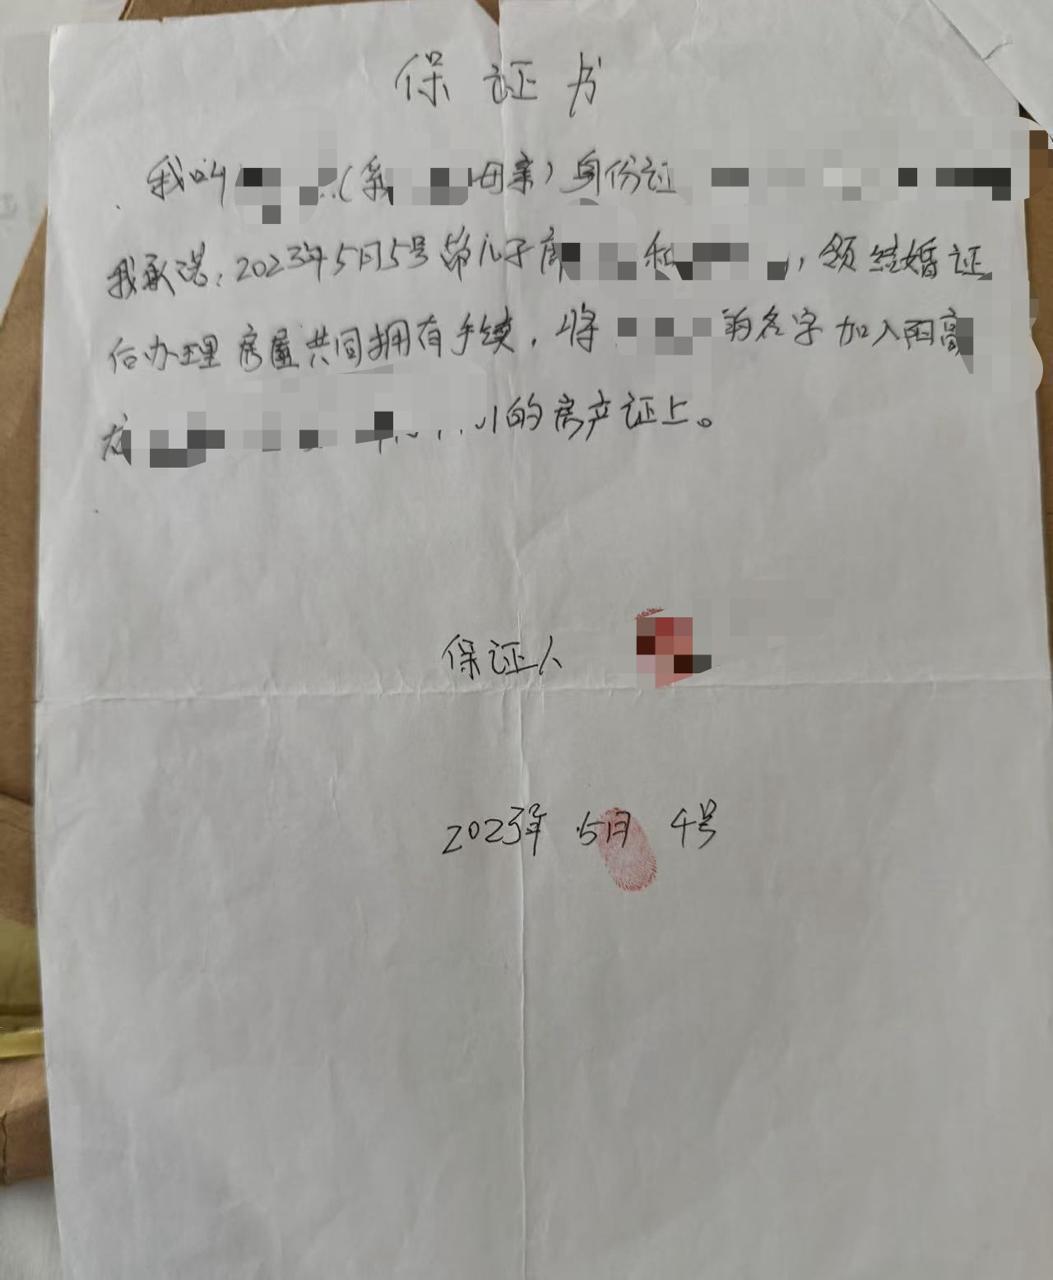 保证书
我叫 (系 母亲) 身份证
我承诺:2023年5月5号 儿子 和 ,领结婚证
后办理房屋共同拥有手续,将 的名字加入
的房产证上。
保证人
2023年 5月 4号